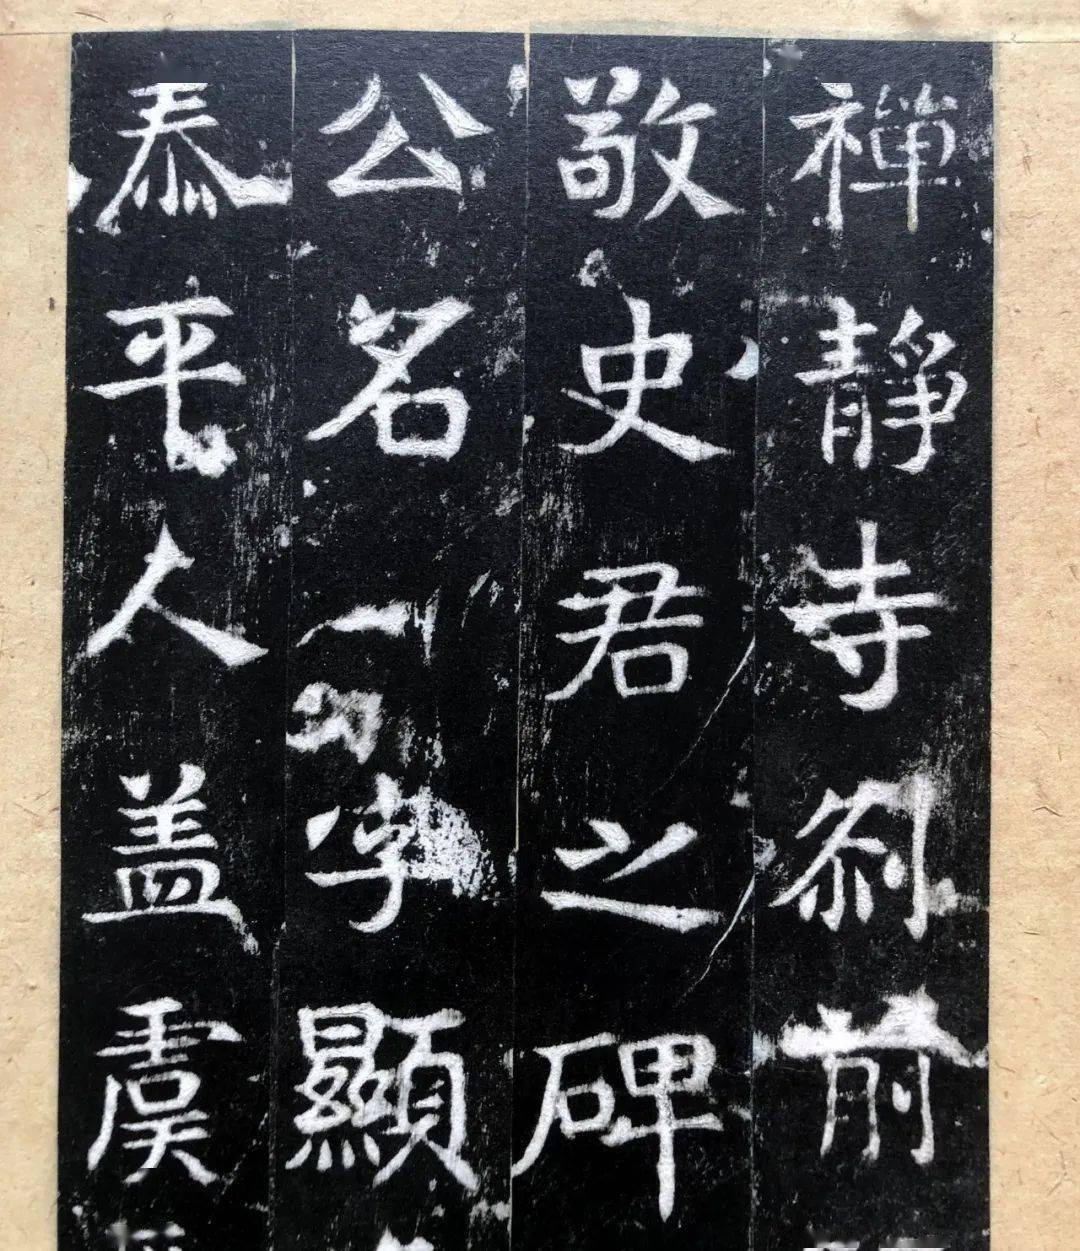 禪靜寺刹前
敬史君之碑
公名字顯
泰平人蓋虞